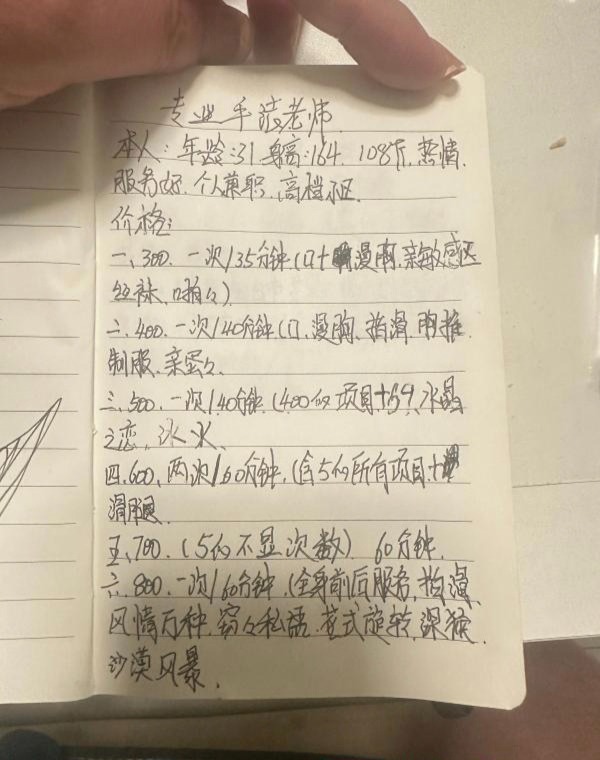 专业手法老师
本人:年龄:31.身高:164. 108斤.热情.
服务好.个人兼职.高档小区.
价格:
一、300.一次/35分钟(口+漫胸.亲敏感区
丝袜、啪々)
二、400.一次/40分钟(口、漫胸、拍滑.胸推
制服、亲蛋々.
三、500、一次/40分钟(400的项目+69、水晶
之恋、冰火、
四、600、两次/60分钟.(含5的所有项目+
滑腿.
五、700.(5的不显次数) 60分钟.
六、800、一次/60分钟(全身前后服务.拍漫
风情万种.窃々私语.花式旋转.深猴
沙漠风暴.